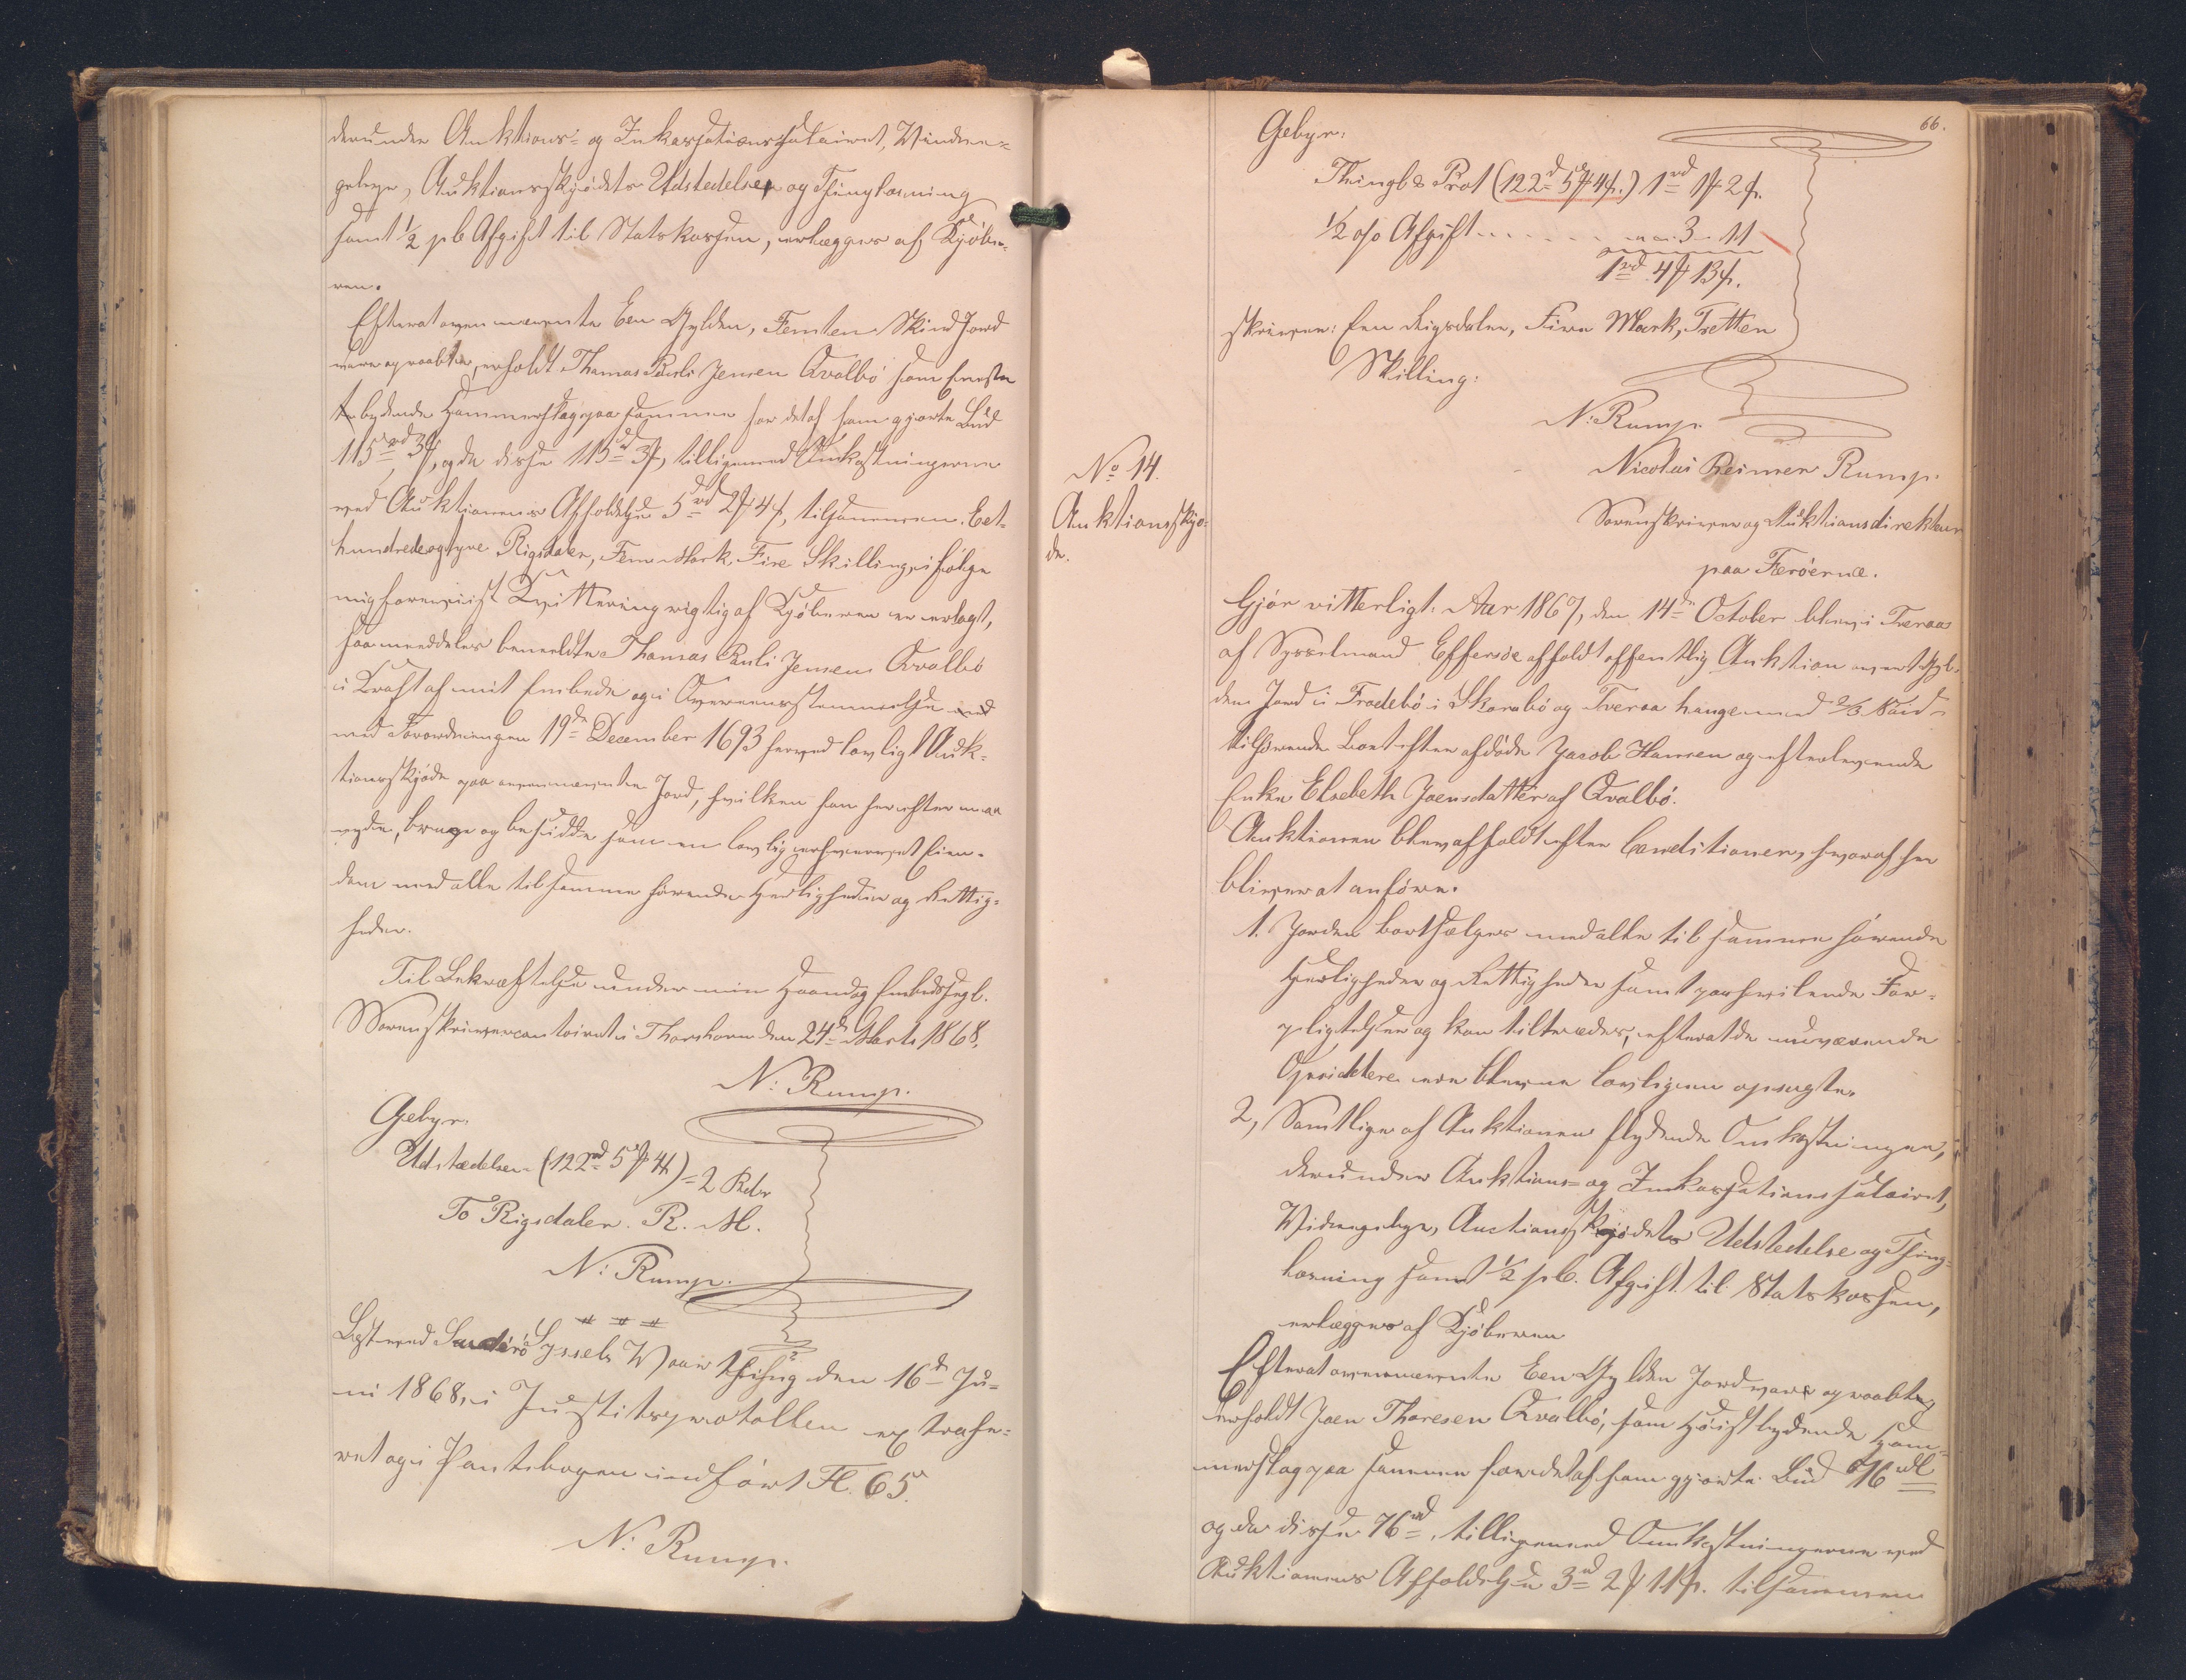 derunder Auktions- og Inkassationssalairet, Vindue=
gebyr, Auktionsskjødets Udstedelse og Thinglæsning
samt ½ pC Afgift til Statskassen, erlægges af Kjøbe-
ren.
Efterat ovennævnte Een Gylden, Femten Skind Jord
vare opraabte, erholdt Thomas Pauli Jensen Qvalbø som højst
bydende Hammerslag paa samme for det af ham gjorte Bud
115rd 3 ß, og da disse 115rd 3 ß, tilligemed Omkostningerne
ved Auktionens Afholdelse 5rd 2 ₰ 4 ß, tilsammen Eet-
hundredeogtyve Rigsdaler, Fem Mark, Fire Skilling, ifølge
mig foreviist Qvittering rigtig af Kjøberen er erlagt,
saa meddeles bemeldte Thomas Pauli Jensen Qvalbø
i Kraft af mit Embede og i Overeensstemmelse
med Forordningen 19de December 1693 herved lovligt Auk-
tionsskjøde paa ovennævnte Jord, hvilken han herefter maa
nyde, bruge og besidde som en lovlig erhvervet Eien-
dom med alle til samme hørende Herligheder og Rettig-
heder.
Til Bekræftelse under min Haand og Embedssegl.
Sorenskrivercontoiret i Thorshavn den 24de Marts 1868.
N: Rump.
Gebyr.
Udstædelsen (122rd 5 ₰ 4 ß) = 2 Rdlr
To Rigsdaler R. M.
N: Rump.
Læst ved Suderø Syssels Vaarthing den 16de Ju-
ni 1868, i Justitsprotollen extrahe-
ret og i Pantebogen indført Fl. 65.
N: Rump.
66.
Gebyr:
Thingl & Prot (122rd 5 ₰ 4 ß.) 1rd 1 ₰ 2 ß.
½ o/o Afgift . . . . . . " " 3 " 11
1rd 4 ₰ 13 ß.
skriver: Een Rigsdaler, Fire Mark, Tretten
Skilling:
N: Rump.
Nicolai Reimer Rump.
Sorenskriver og Auktionsdirekteur
paa Færøerne.
No 14.
Auktionsskjø-
de.
Gjør vitterligt: Aar 1867, den 14de October blev i Tveraa
af Sysselmand Effersøe afholdt offentlig Auktion over 1 Gyl-
den Jord i Frodebø i Skarabø og Tveraa hauge med 2/3 Nåid-
tilhørende Boet efter afdøde Jacob Hansen og efterlevende
Enke Elsebeth Joensdatter af Qvalbø.
Auktionen blev afholdt efter Conditioner, hvoraf her
bliver at anføre.
1. Jorden bortsælges med alle til samme hørende
Herligheder og Rettigheder samt paahvilende For-
pligtelser og kan tiltrædes, efterat de nuværende
Opsiddere ere blevne lovligen opsagte.
2, Samtlige af Auktionen flydende Omkostninger,
derunder Auktions- og Inkassationssalairet,
Viduegebyr, Auctionsskjødets Udstedelse og Thing-
læsning samt ½ pC. Afgift til Statskassen,
erlægges af Kjøberen
Efterat ovennævnte Een Gylden Jord vare opraabte,
erholdt Joen Thoresen Qvalbø, som Høistbydende Ham-
merslag paa samme for det af ham gjorte Bud 76rdl
og da disse 76rd, tilligemed Omkostningerne ved
Auktionens Afholdelse 3rd 2 ₰ 11 ß. tilsammen